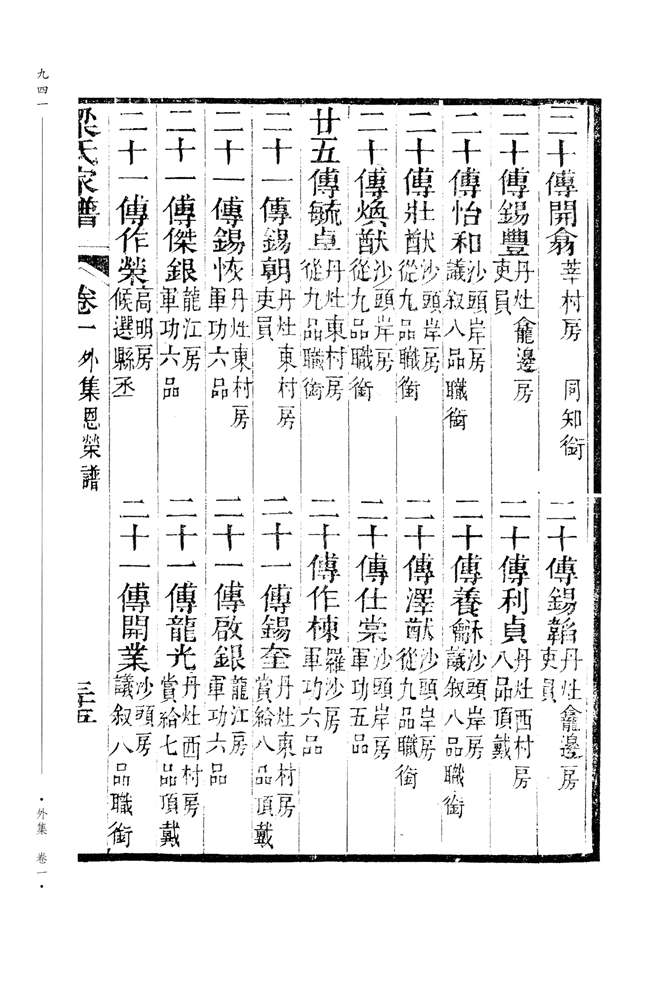 二十傳開翕 莘村房 同知銜
二十傳錫韜 丹灶龕邊房 吏員
二十傳錫豐 丹灶龕邊房 吏員
二十傳利貞 丹灶西村房 八品頂戴
二十傳怡和 沙頭岸房 議敘八品職銜
二十傳養龢 沙頭岸房 議敘八品職銜
二十傳壯猷 沙頭岸房 從九品職銜
二十傳澤猷 沙頭岸房 從九品職銜
二十傳煥猷 沙頭岸房 從九品職銜
二十傳仕棠 沙頭岸房 軍功五品
廿五傳毓卓 丹灶東村房 從九品職銜
二十傳作棟 羅沙房 軍功六品
二十一傳錫朝 丹灶東村房 吏員
二十一傳錫奎 丹灶東村房 賞給八品頂戴
二十一傳錫恢 丹灶東村房 軍功六品
二十一傳啟銀 龍江房 軍功六品
二十一傳傑銀 龍江房 軍功六品
二十一傳龍光 丹灶西村房 賞給七品頂戴
二十一傳作榮 高明房 候選縣丞
二十一傳開業 沙頭房 議敘八品職銜
梁氏家譜 卷一 外集恩榮譜 三十五
九四一
·外集 卷一·